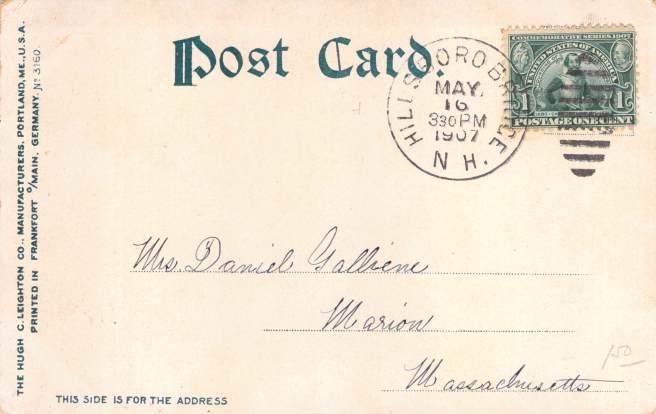 Post Card.
HILLSBORO BRIDGE
MAY.
16
330PM
1907
N.H.
COMMEMORATIVE SERIES 1907
UNITED STATES OF AMERICA
1 1
POSTAGE ONE CENT
Mrs. Daniel Galliene
Marion
Massachusetts
150
THIS SIDE IS FOR THE ADDRESS
THE HUGH C. LEIGHTON CO., MANUFACTURERS, PORTLAND, ME., U.S.A.
PRINTED IN FRANKFORT o/MAIN, GERMANY. No 3160.